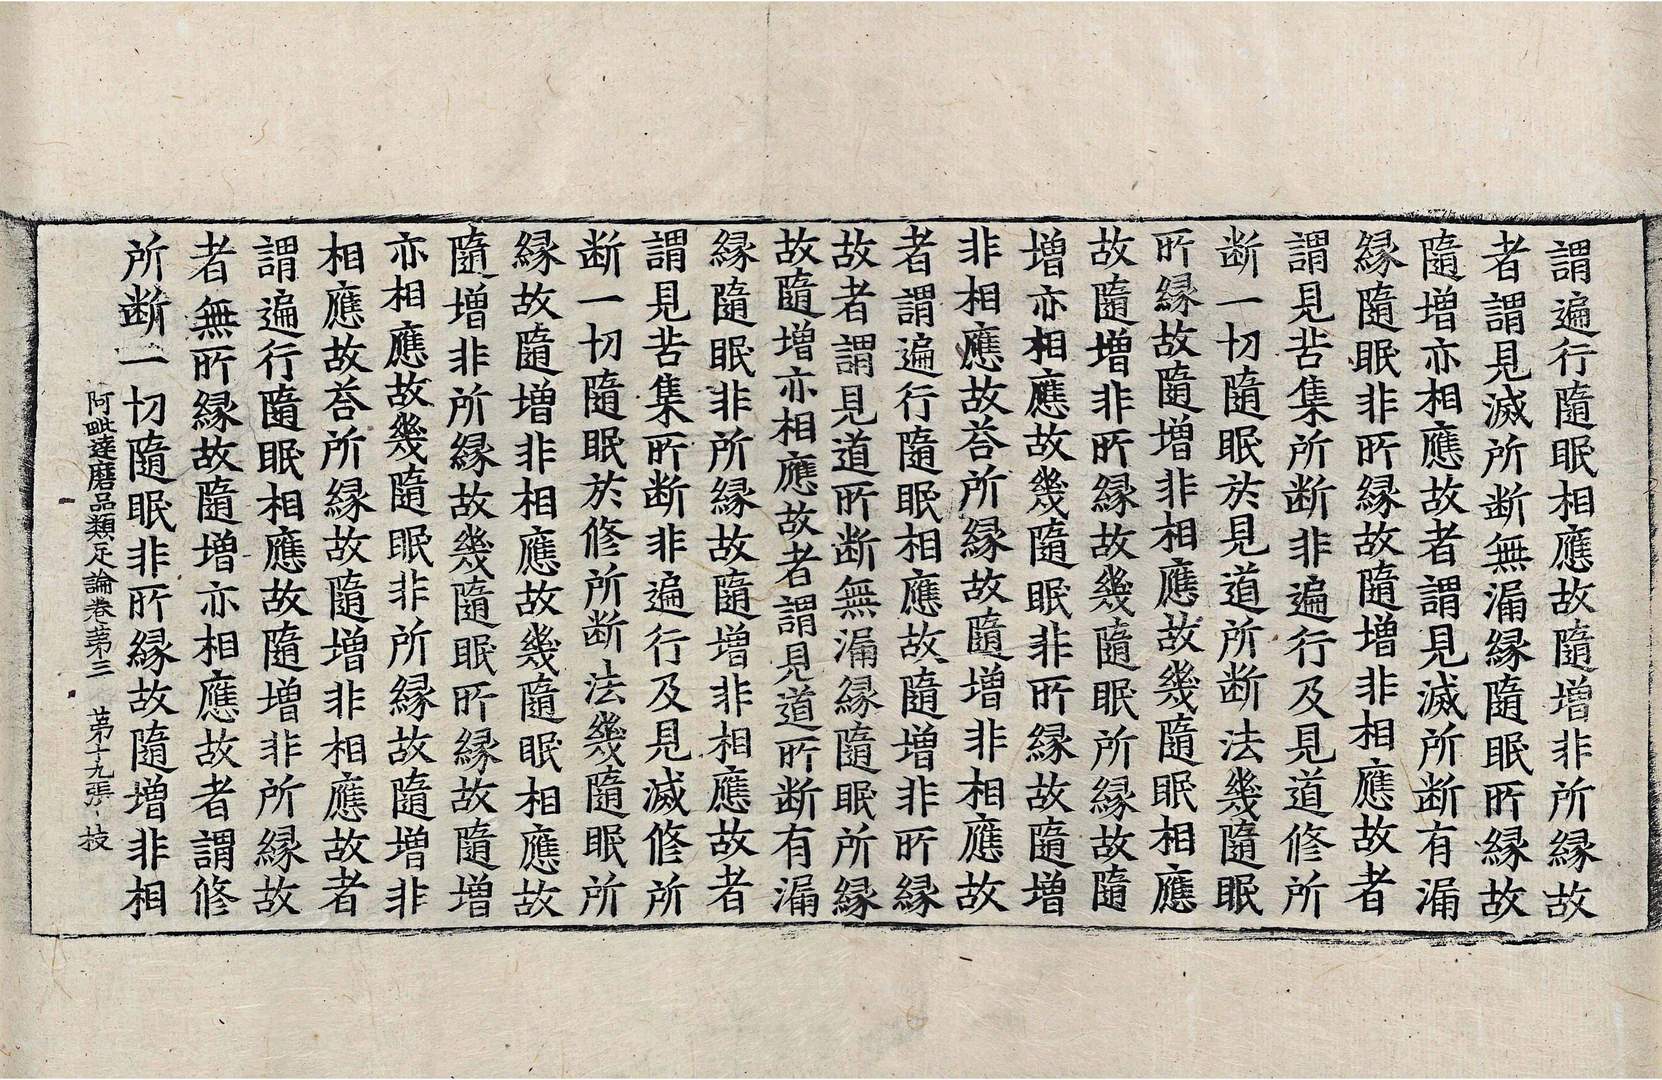 謂遍行隨眠相應故隨增非所緣故
者謂見滅所斷無漏緣隨眠所緣故
隨增亦相應故者謂見滅所斷有漏
緣隨眠非所緣故隨增非相應故者
謂見苦集所斷非遍行及見道修所
斷一切隨眠於見道所斷法幾隨眠
所緣故隨增非相應故幾隨眠相應
故隨增非所緣故幾隨眠所緣故隨
增亦相應故幾隨眠非所緣故隨增
非相應故荅所緣故隨增非相應故
者謂遍行隨眠相應故隨增非所緣
故者謂見道所斷無漏緣隨眠所緣
故隨增亦相應故者謂見道所斷有漏
緣隨眠非所緣故隨增非相應故者
謂見苦集所斷非遍行及見滅修所
斷一切隨眠於修所斷法幾隨眠所
緣故隨增非相應故幾隨眠相應故
隨增非所緣故幾隨眠所緣故隨增
亦相應故幾隨眠非所緣故隨增非
相應故荅所緣故隨增非相應故者
謂遍行隨眠相應故隨增非所緣故
者無所緣故隨增亦相應故者謂修
所斷一切隨眠非所緣故隨增非相
阿毗達磨品類足論卷第三 第十九張 技